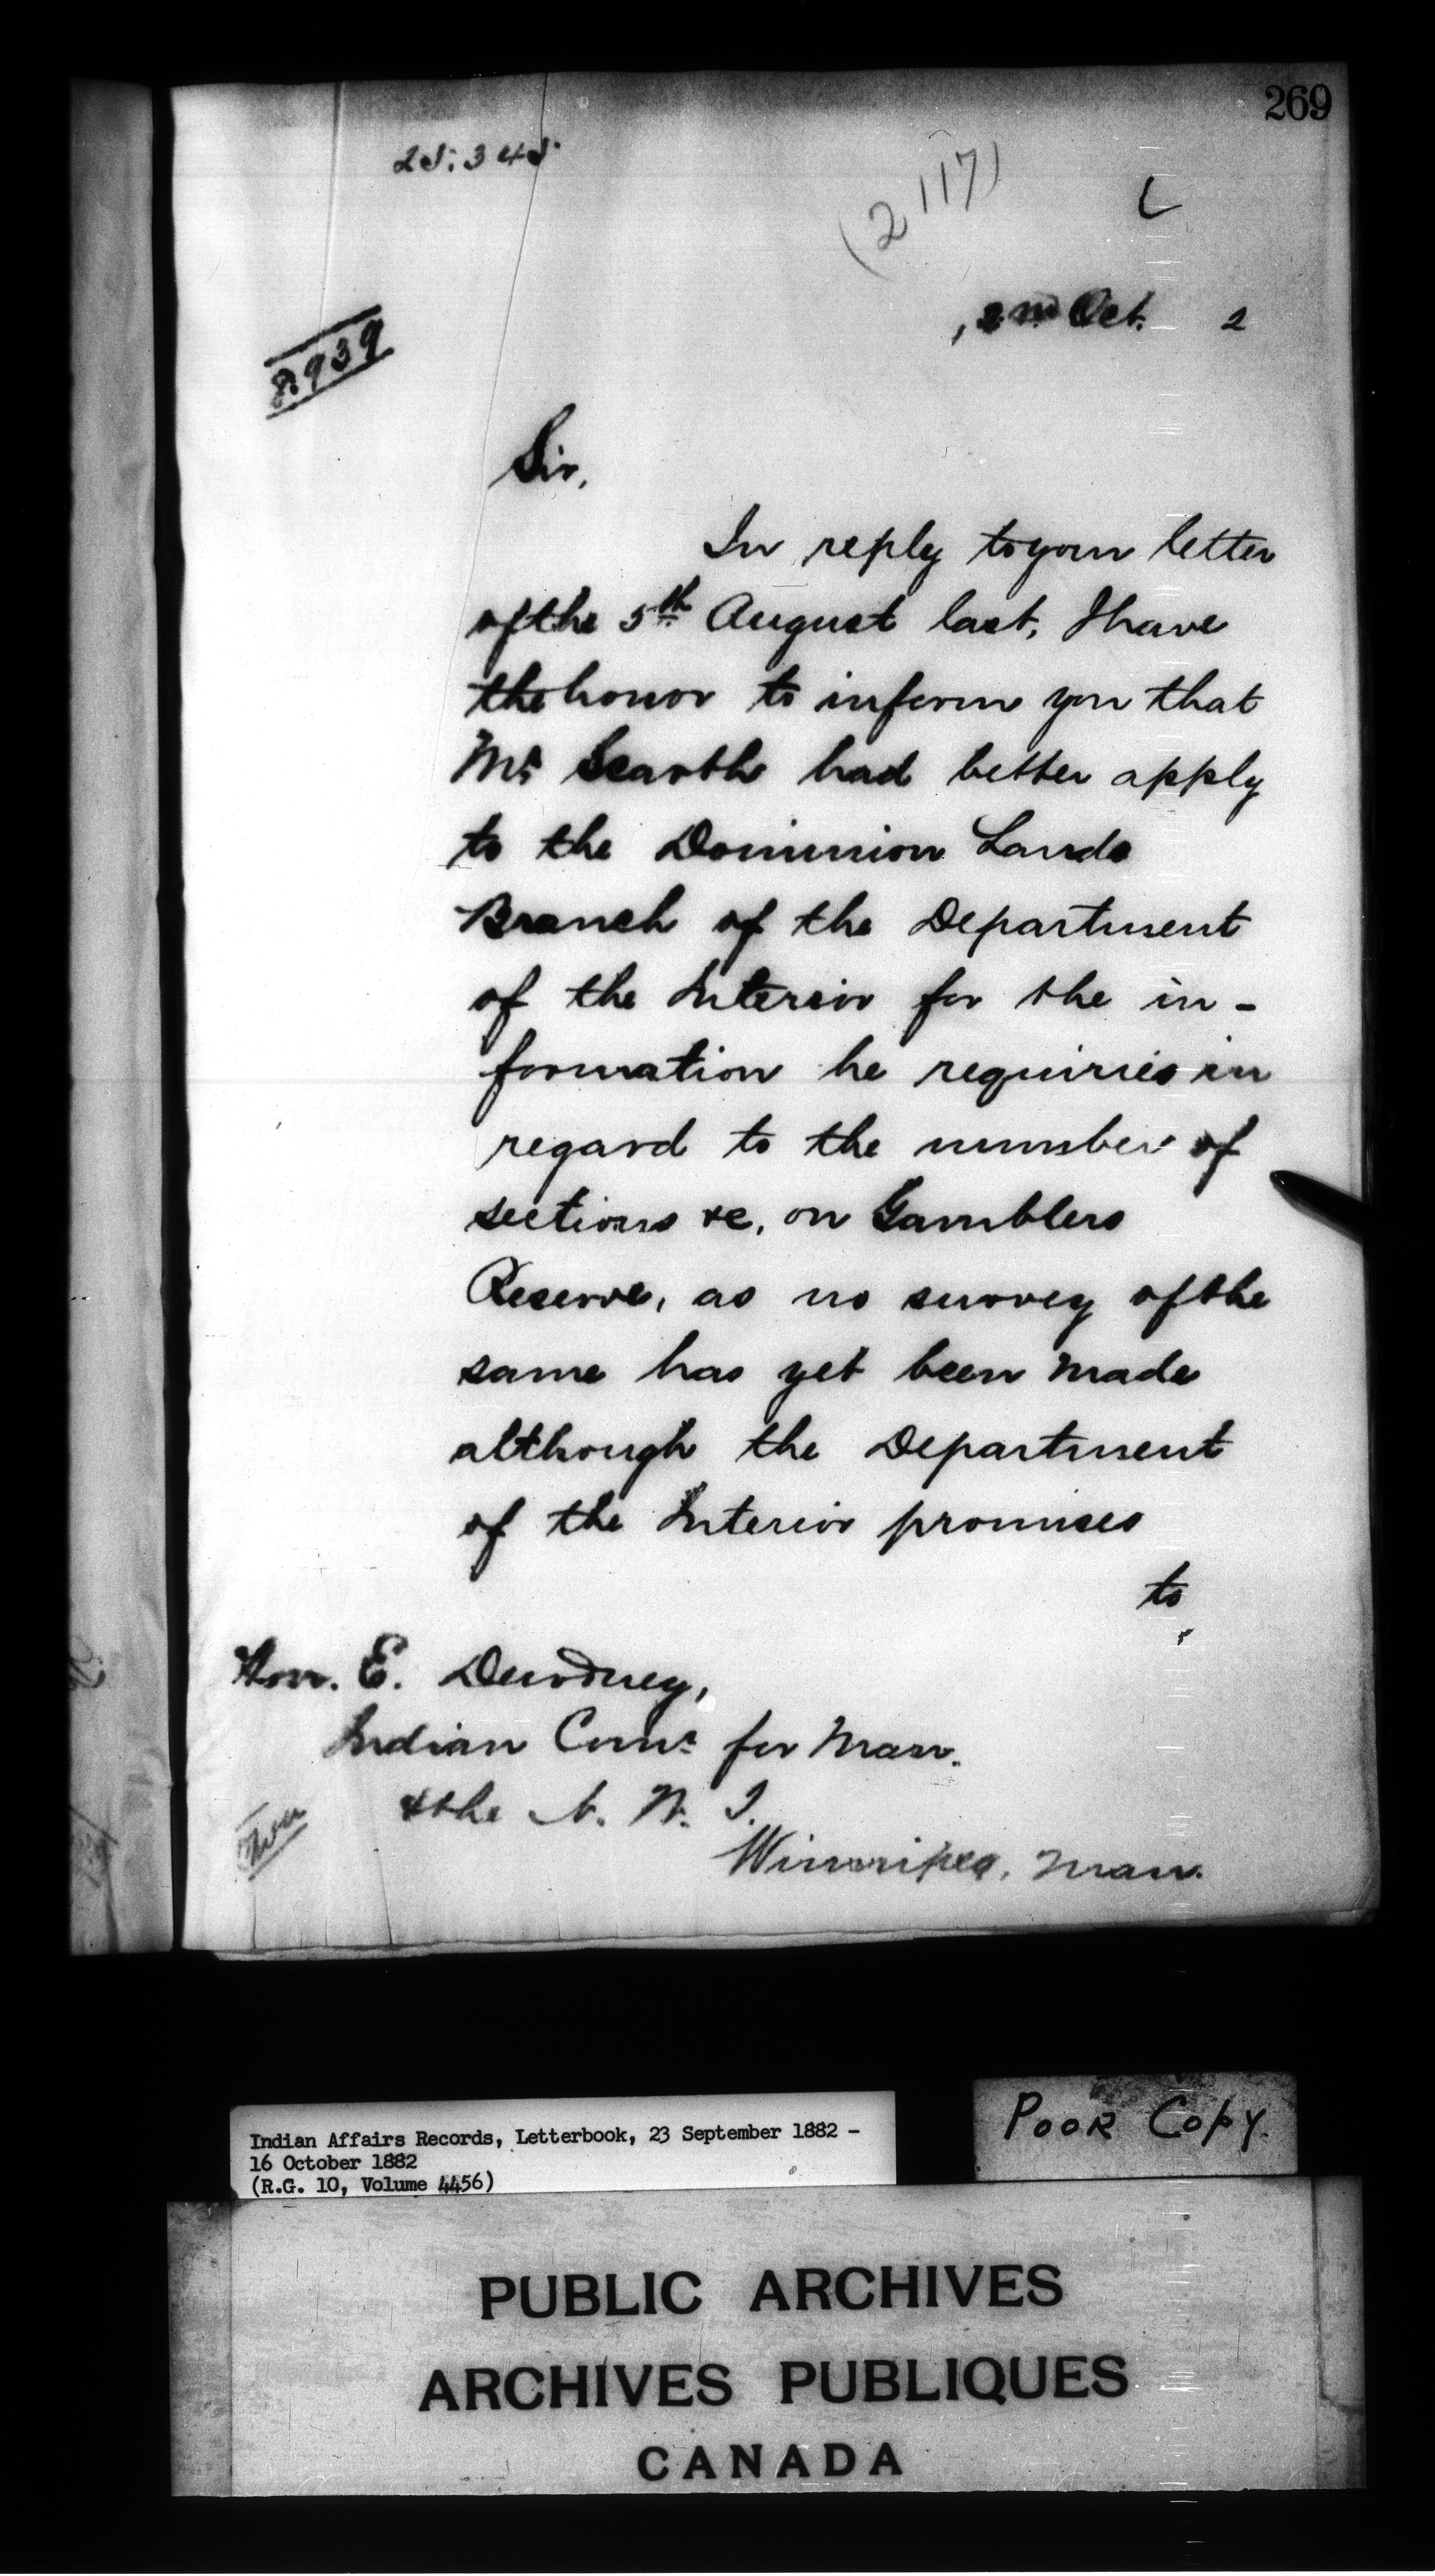 269
25.345
(2117)
2nd Oct. 2
8939
Sir,
In reply to your letter
of the 5th August last, I have
the honor to inform you that
Mr. Scarth had better apply
to the Dominion Lands
Branch of the Department
of the Interior for the in-
formation he requiries in
regard to the number of
sections &c, on Gamblers
Reserve, as no survey of the
same has yet been made
although the Department
of the Interior promises
to
Hon. E. Dewdney,
Indian Comr. for Man.
& the N. W. T.
Winnipeg, Man.
Indian Affairs Records, Letterbook, 23 September 1882 -
16 October 1882
(R.G. 10, Volume 4456)
POOR COPY.
PUBLIC ARCHIVES
ARCHIVES PUBLIQUES
CANADA